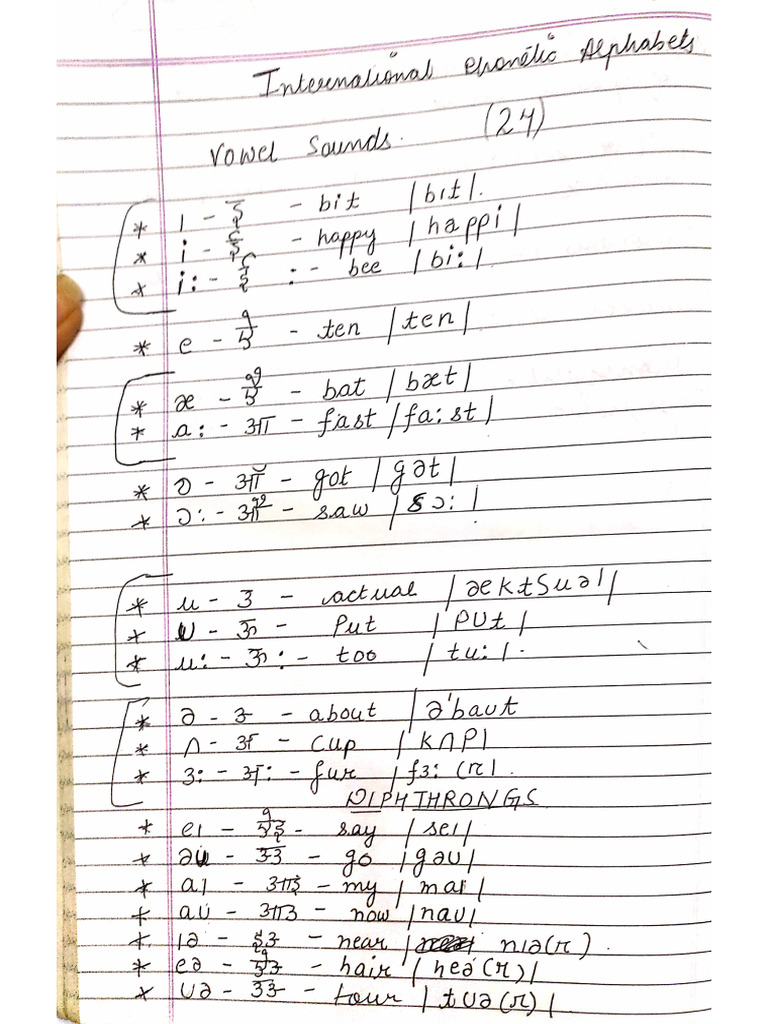 International Phonetic Alphabets
Vowel Sounds. (24)
* ı - इ - bit |bıt|.
* i - ई - happy |happi|
* i: - ई : - bee |bi:|
* e - ऐ - ten |ten|
* æ - - bat |bæt|
* a: - आ - fast |fa:st|
* ɒ - ऑ - got |gət|
* ɔ: - - saw |sɔ:|
* u - उ - actual |æktSuəl|
* ʊ - ऊ - Put |PUt|
* u: - ऊ : - too |tu:|.
* ə - उ - about |ə'baʊt
* ʌ - अ - Cup |kʌP|
* ɜ: - अ: - fur |fɜ: (r|.
DIPHTHRONGS
* eı - - say |seı|
* əʊ - उउ - go |gəʊ|
* aı - आइ - my |maı|
* aʊ - आउ - now |naʊ|
* ıə - इउ - near | nıə(r).
* eə - - hair |heə(r)|
* ʊə - उउ - tour |tʊə(r)|